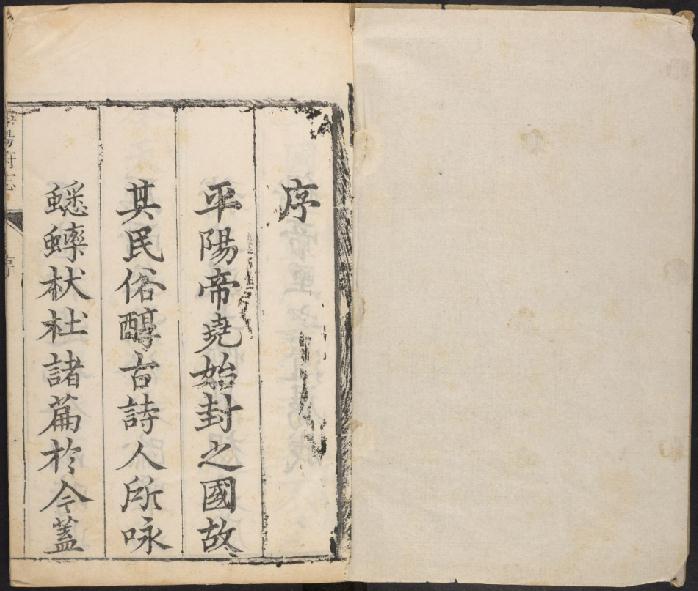 序
平陽帝堯始封之國故
其民俗醇古詩人所咏
蟋蟀杕杜諸篇於今蓋
序